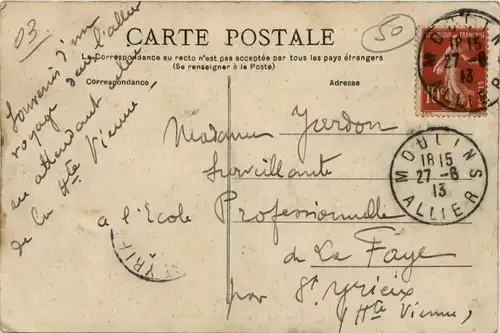 03
50
CARTE POSTALE
La Correspondance au recto n'est pas acceptée par tous les pays étrangers
(Se renseigner à la Poste)
Correspondance
Adresse
Souvenir d'un
voyage dans l'allier
en attendant celui
de la Hte Vienne,
Madame Jardon
Surveillante
a l'Ecole Professionnelle
de La Faye
par St Yrieix
(Hte Vienne)
MOULINS
18 15
27 - 6
13
ALLIER
MOULINS
18 15
27 - 6
13
ALLIER
YRIE
10